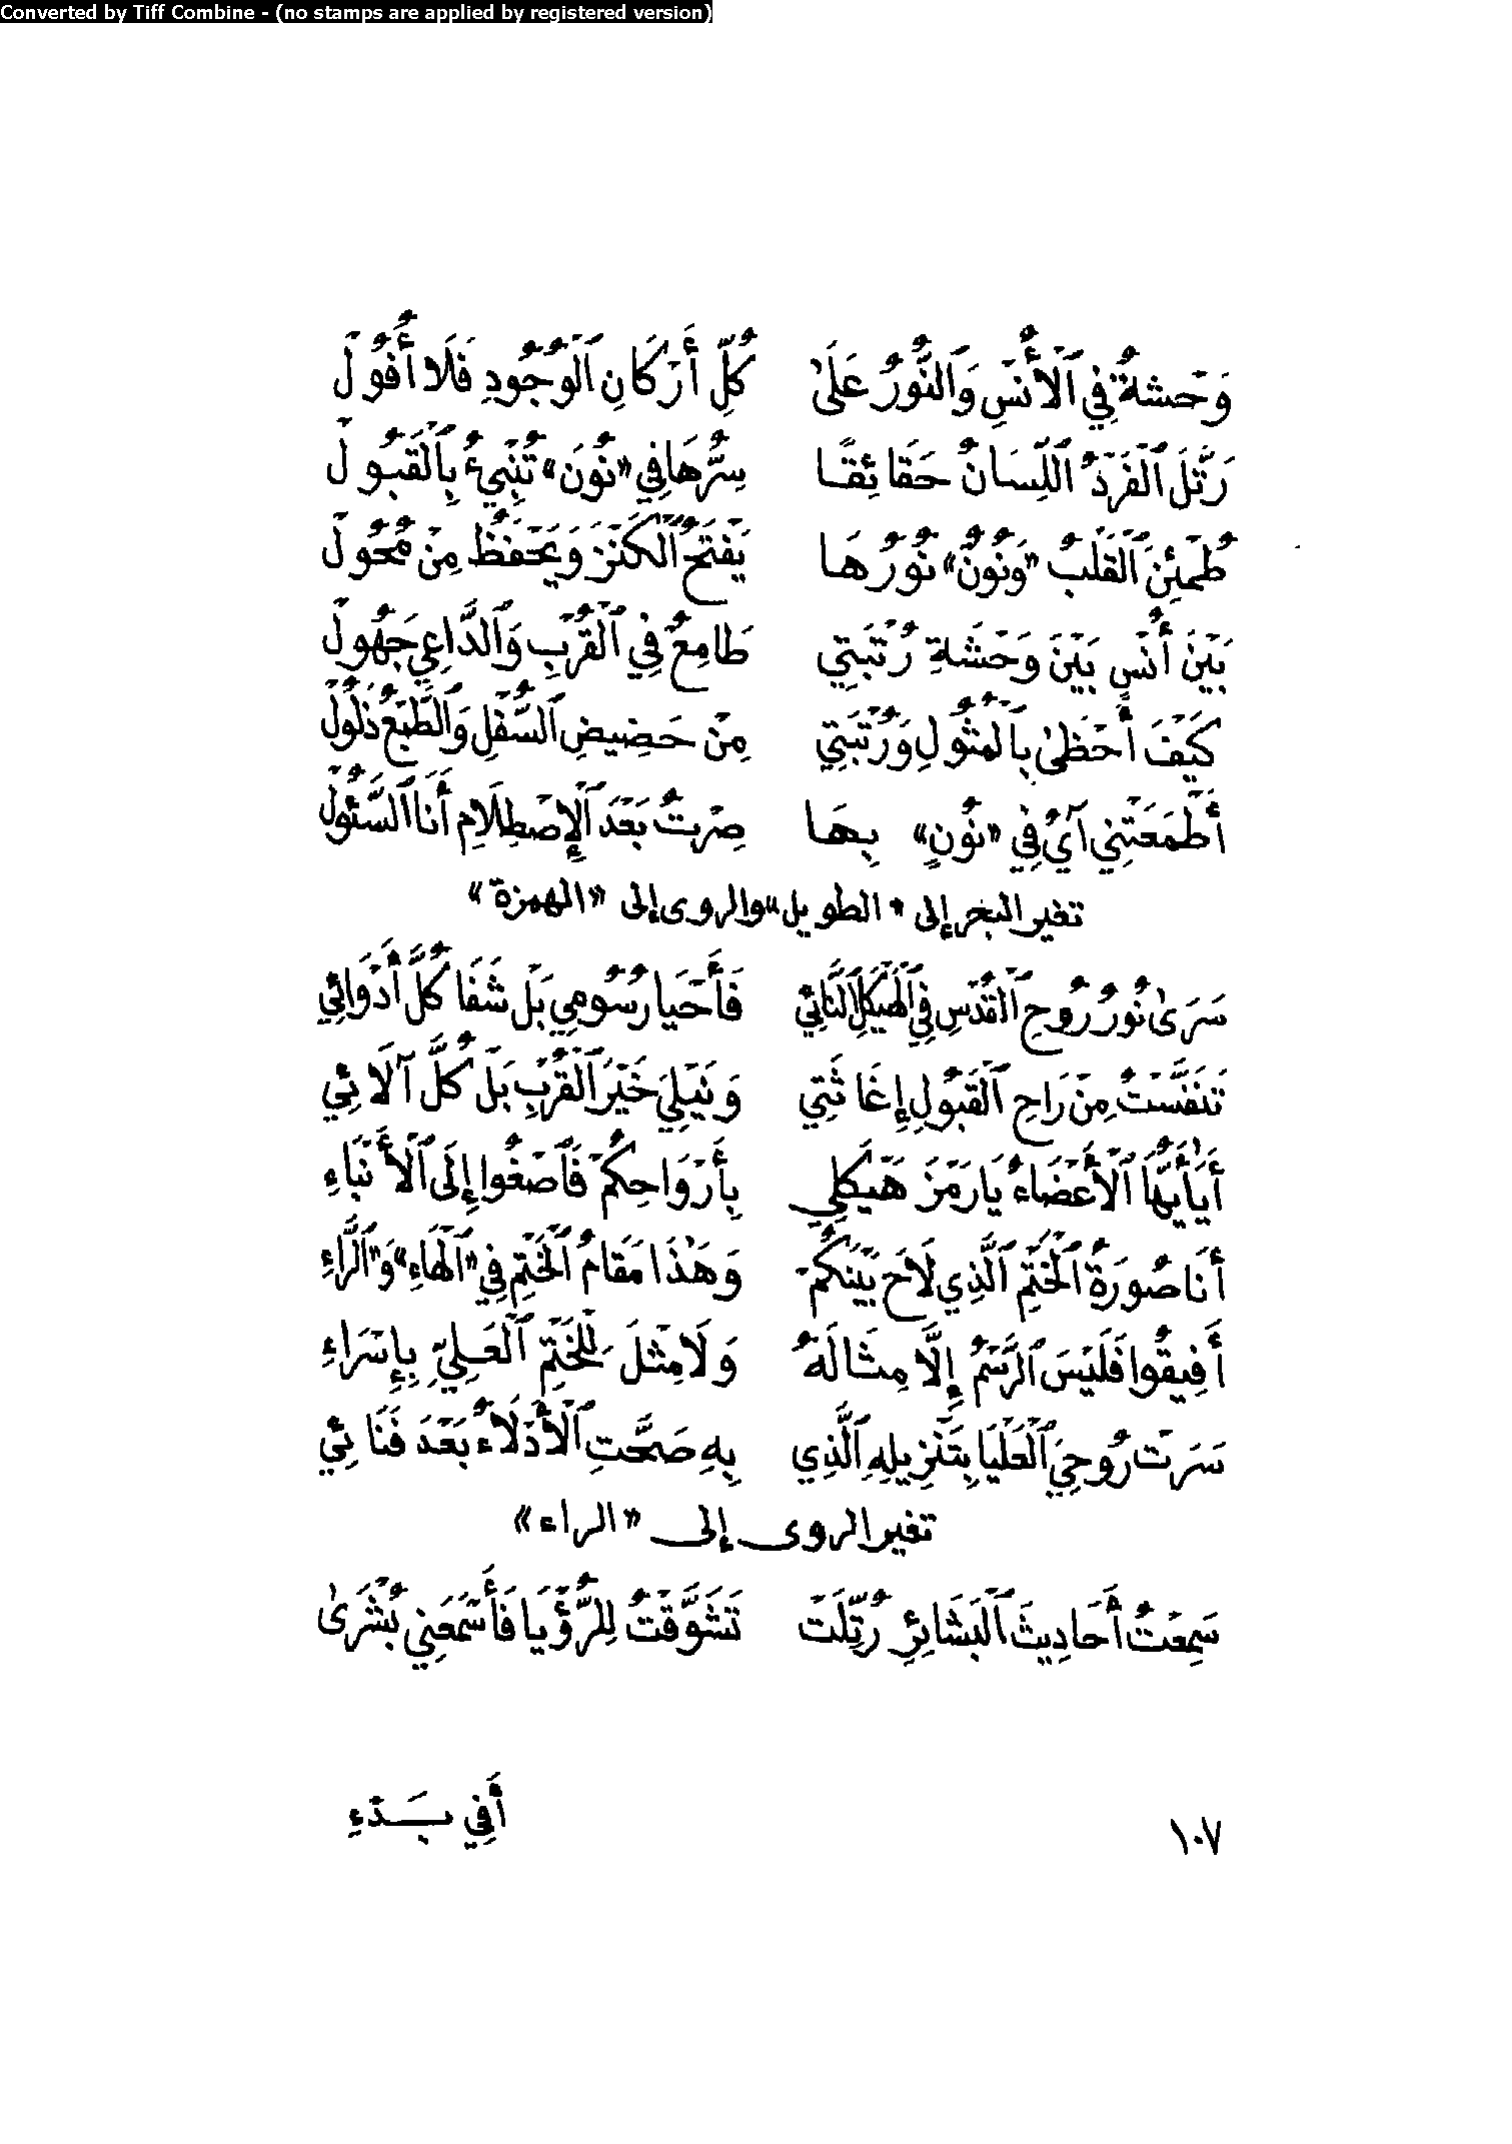 Converted by Tiff Combine - (no stamps are applied by registered version)
وَحْشَةٌ فِي ٱلْأُنْسِ وَٱلنُّورُ عَلَىٰ كُلِّ أَرْكَانِ ٱلْوُجُودِ فَلَا أُفُولْ
رَتَّلَ ٱلْفَرْدُ اللِّسَانُ حَقَائِقًا سِرُّهَا فِي «نُونَ» تُنْبِيءُ بِٱلْقَبُولْ
طُمْئِنَ ٱلْقَلْبُ «وَنُونٌ» نُورُهَا يَفْتَحُ ٱلْكَنْزَ وَيَحْفَظُ مِنْ مُحُولْ
بَيْنَ أُنْسٍ بَيْنَ وَحْشَةِ رُتْبَتِي طَامِعٌ فِي ٱلْقُرْبِ وَٱلدَّاعِي جَهُولْ
كَيْفَ أَحْظَىٰ بِٱلْمُثُولِ وَرُتْبَتِي مِنْ حَضِيضِ ٱلسُّفْلِ وَٱلطَّبْعُ ذَلُولْ
أَطْمَعَتْنِي آيٌ فِي «نُونٍ» بِهَا صِرْتُ بَعْدَ ٱلْإِصْطِلَامِ أَنَا ٱلسَّئُولْ
تغير البحر إلى «الطويل» والروى إلى «الهمزة»
سَرَىٰ نُورُ رُوحِ ٱلْقُدْسِ فِي ٱلْهَيْكَلِ ٱلنَّائِي فَأَحْيَا رُسُومِي بَلْ شَفَا كُلَّ أَدْوَائِي
تَنَفَّسْتُ مِنْ رَاحِ ٱلْقَبُولِ إِغَاثَتِي وَنَيْلِيَ خَيْرَ ٱلْقُرْبِ بَلْ كُلَّ آلَائِي
أَيَا أَيُّهَا ٱلْأَعْضَاءُ يَا رَمْزَ هَيْكَلِي بِأَرْوَاحِكُمْ فَٱصْغُوا إِلَى ٱلْأَنْبَاءِ
أَنَا صُورَةُ ٱلْخَتْمِ ٱلَّذِي لَاحَ بَيْنَكُمْ وَهَٰذَا مَقَامُ ٱلْخَتْمِ فِي «ٱلْهَاءِ» وَ«ٱلرَّاءِ
أَفِيقُوا فَلَيْسَ ٱلرَّسْمُ إِلَّا مِثَالَهُ وَلَا مِثْلَ لِلْخَتْمِ ٱلْعَلِيِّ بِإِسْرَاءِ
سَرَتْ رُوحِيَ ٱلْعَلْيَا بِتَنْزِيلِهِ ٱلَّذِي بِهِ صَحَّتِ ٱلْأَدْلَاءُ بَعْدَ فَنَائِي
تغير الروى إلى «الراء»
سَمِعْتُ أَحَادِيثَ ٱلْبَشَائِرِ رُتِّلَتْ تَشَوَّقْتُ لِلرُّؤْيَا فَأَسْمَعَنِي بُشْرَىٰ
أَفِي بَدْءِ
١٠٧